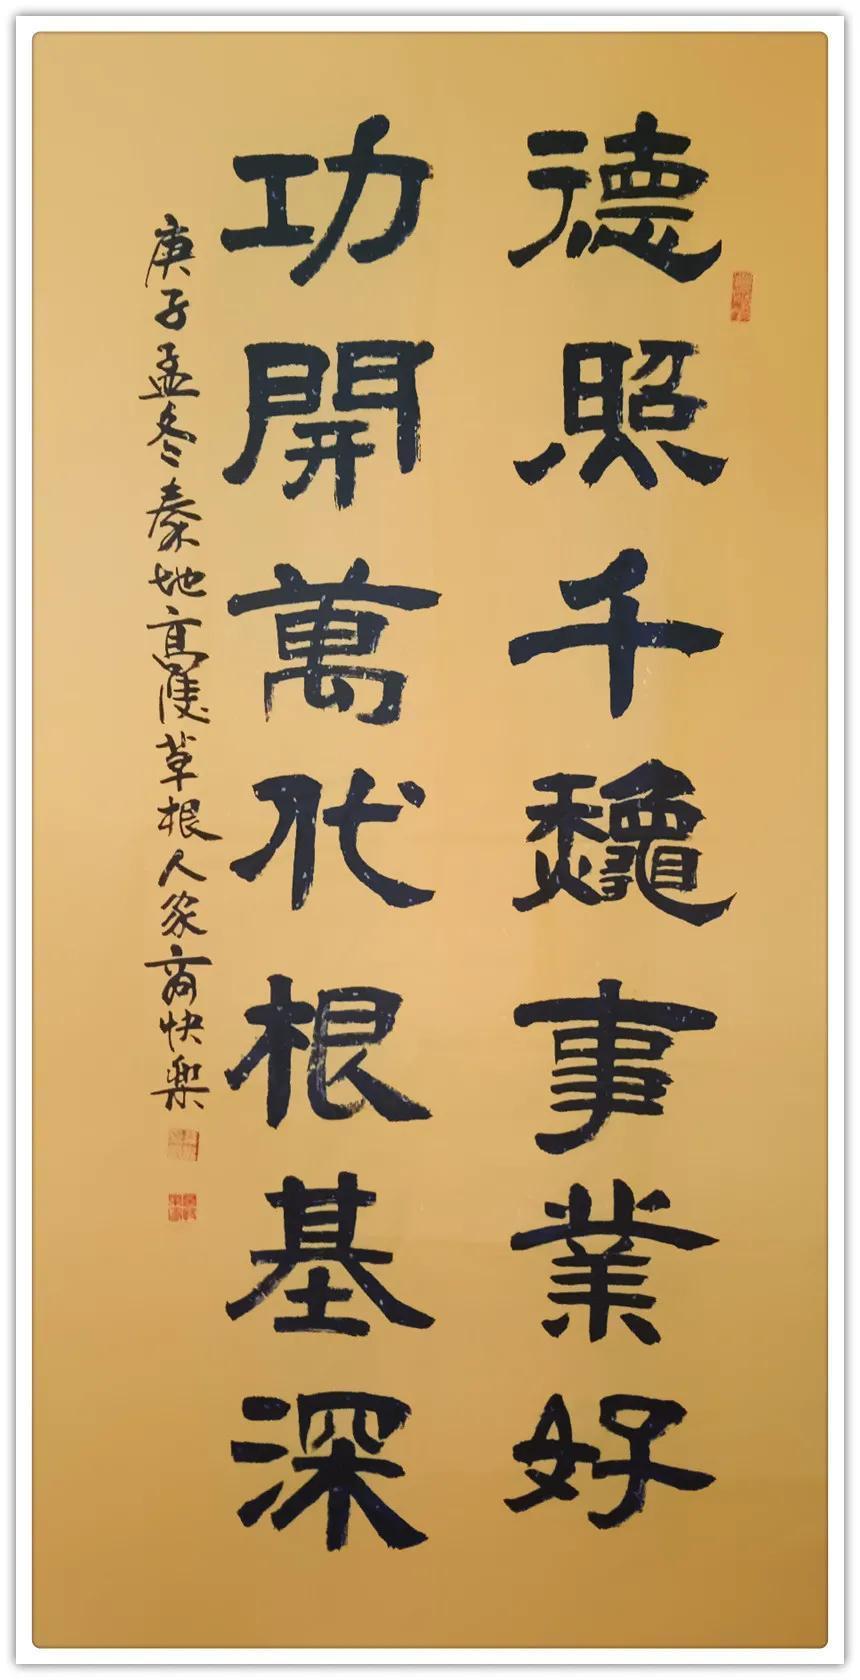 德照千龝事業好
功開萬代根基深
庚子孟冬秦地高陵草根人家商快樂